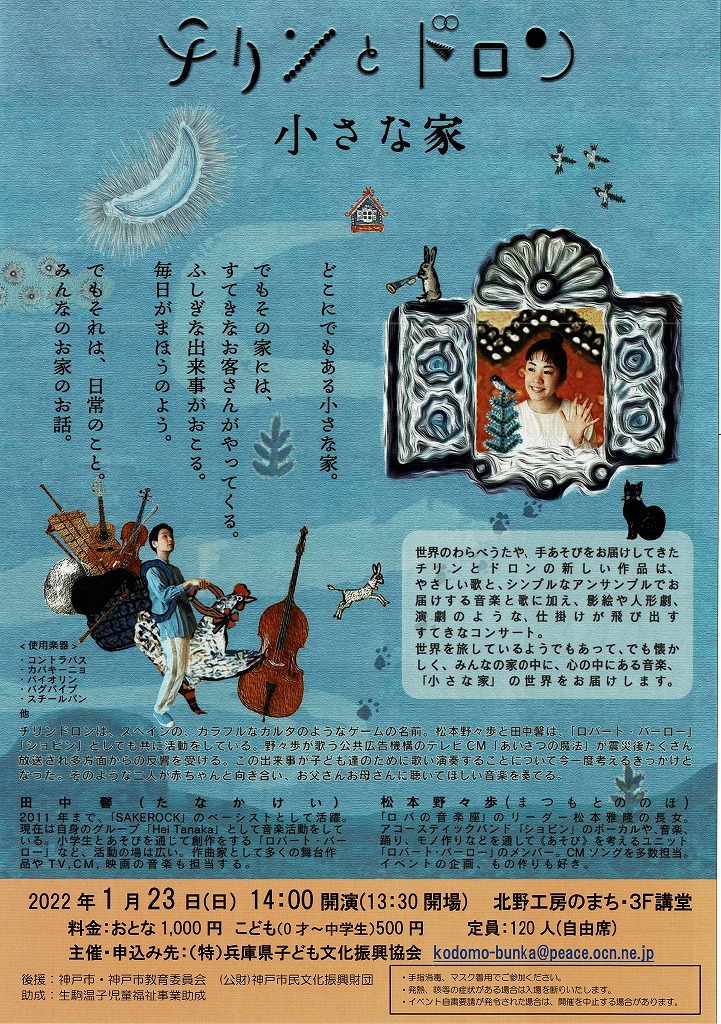 チリンとドロン
小さな家
どこにでもある小さな家。
でもその家には、
すてきなお客さんがやってくる。
ふしぎな出来事がおこる。
毎日がまほうのよう。
でもそれは、日常のこと。
みんなのお家のお話。
世界のわらべうたや、手あそびをお届けしてきた
チリンとドロンの新しい作品は、
やさしい歌と、シンプルなアンサンブルでお
届けする音楽と歌に加え、影絵や人形劇、
演劇のような、仕掛けが飛び出す
すてきなコンサート。
世界を旅しているようでもあって、でも懐か
しく、みんなの家の中に、心の中にある音楽、
「小さな家」の世界をお届けします。
<使用楽器>
・コントラバス
・カバキーニョ
・バイオリン
・バグパイプ
・スチールパン
他
チリンドロンは、スペインの、カラフルなカルタのようなゲームの名前。松本野々歩と田中馨は、「ロバート・バーロー」
「ショピン」としても共に活動をしている。野々歩が歌う公共広告機構のテレビCM「あいさつの魔法」が震災後たくさん
放送され多方面からの反響を受ける。この出来事が子ども達のために歌い演奏することについて今一度考えるきっかけと
なった。そのような二人が赤ちゃんと向き合い、お父さんお母さんに聴いてほしい音楽を奏てる。
田中馨(たなかけい)
2011年まで、「SAKEROCK」のベーシストとして活躍。
現在は自身のグループ「Hei Tanaka」として音楽活動をして
いる。小学生とあそびを通じて創作をする「ロバート・バー
ロー」など、活動の場は広い。作曲家として多くの舞台作
品やTV,CM、映画の音楽も担当する。
松本野々歩(まつもとののほ)
「ロバの音楽座」のリーダー松本雅隆の長女。
アコースティックバンド「ショピン」のボーカルや、音楽、
踊り、モノ作りなどを通して《あそび》を考えるユニット
「ロバート・バーロー」のメンバー。CMソングを多数担当。
イベントの企画、もの作りも好き。
2022年1月23日(日) 14:00開演(13:30開場) 北野工房のまち・3F講堂
料金:おとな1,000円 こども(0才～中学生)500円 定員:120人(自由席)
主催・申込み先:(特)兵庫県子ども文化振興協会 kodomo-bunka@peace.ocn.ne.jp
後援:神戸市・神戸市教育委員会 (公財)神戸市民文化振興財団
助成:生駒温子児童福祉事業助成
・手指消毒、マスク着用でご参加ください。
・発熱、咳等の症状がある場合は入場を断りいたします。
・イベント自粛要請が発令された場合は、開催を中止する場合があります。